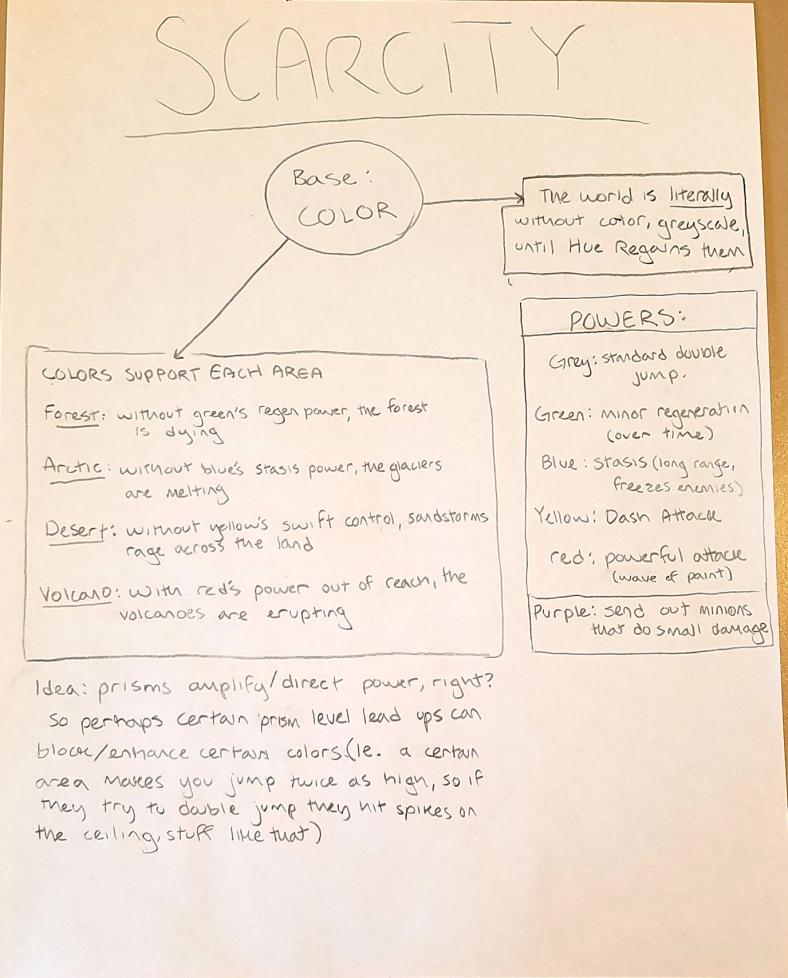 SCARCITY
Base:
COLOR
The world is literally
without color, greyscale,
until Hue Regains them
POWERS:
Grey: standard double
jump.
Green: minor regeneration
(over time)
Blue: stasis (long range,
freezes enemies)
Yellow: Dash Attack
red: powerful attack
(wave of paint)
Purple: send out minions
that do small damage
COLORS SUPPORT EACH AREA
Forest: without green's regen power, the forest
is dying
Arctic: without blue's stasis power, the glaciers
are melting
Desert: without yellow's swift control, sandstorms
rage across the land
Volcano: with red's power out of reach, the
volcanoes are erupting
Idea: prisms amplify/direct power, right?
So perhaps certain prism level lead ups can
block/enhance certain colors (Ie. a certain
area makes you jump twice as high, so if
they try to double jump they hit spikes on
the ceiling, stuff like that)